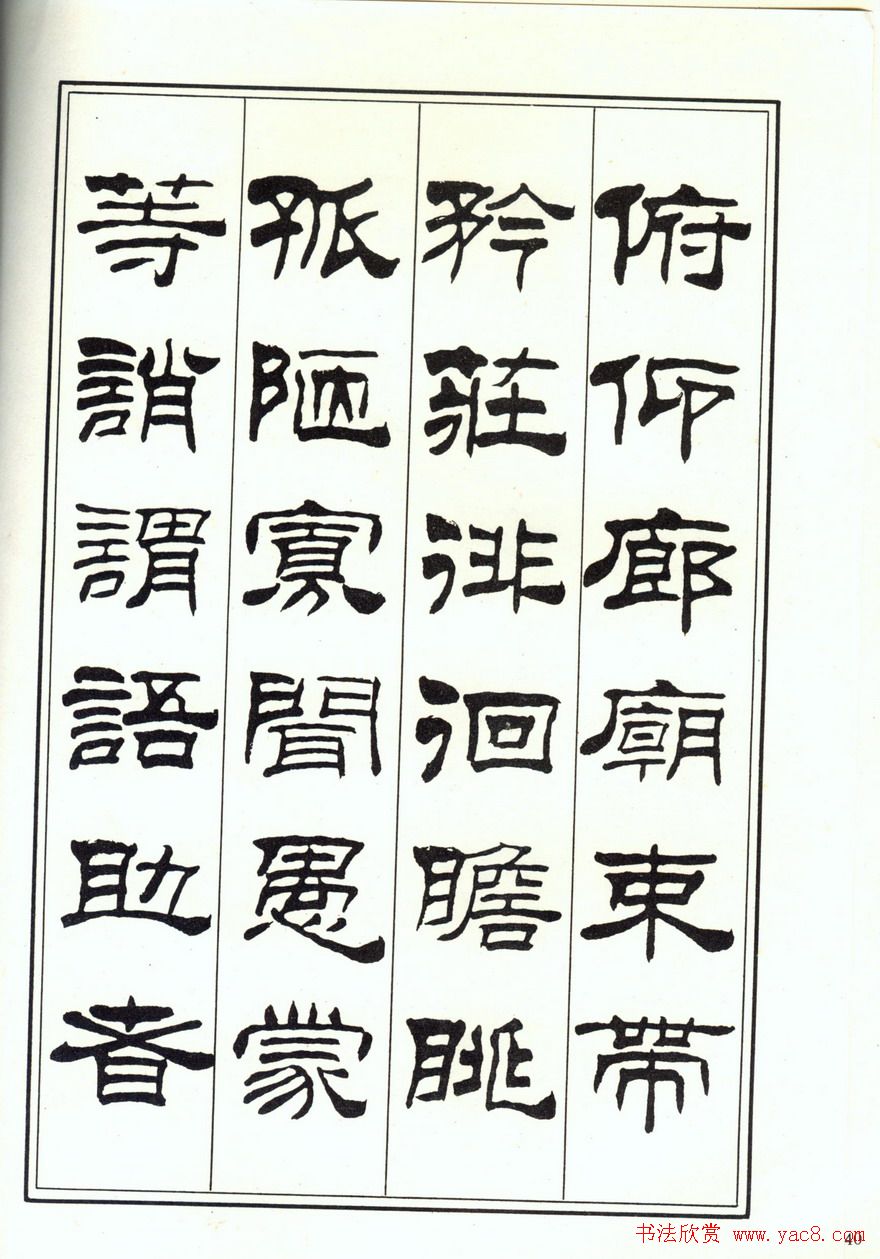 俯仰廊廟束帶
矜莊徘徊瞻眺
孤陋寡聞愚蒙
等誚謂語助者
书法欣赏 www.yac8.com
40